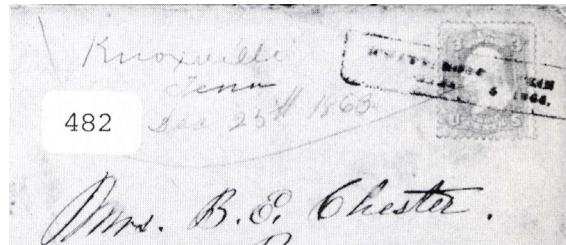 Knoxville
Tenn
Dec 25th 1863
482
Mrs. B. E. Chester.